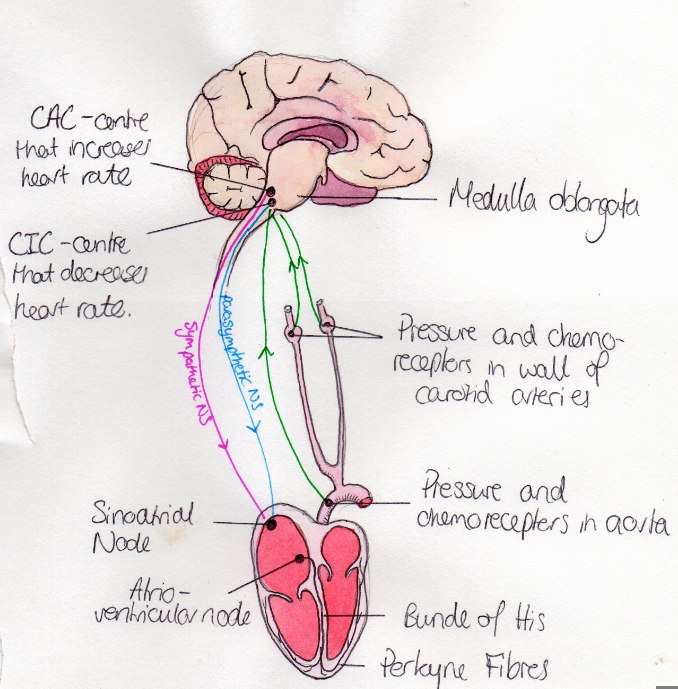 CAC-centre
that increases
heart rate
CIC-centre
that decreases
heart rate.
Medulla oblongata
Sympathetic NS
parasympthetic NS
Pressure and chemo-
recepters in wall of
carotid arteries
Pressure and
chemorecepters in aorta
Sinoatrial
Node
Atrio-
ventricular node
Bunde of His
Perkyne Fibres